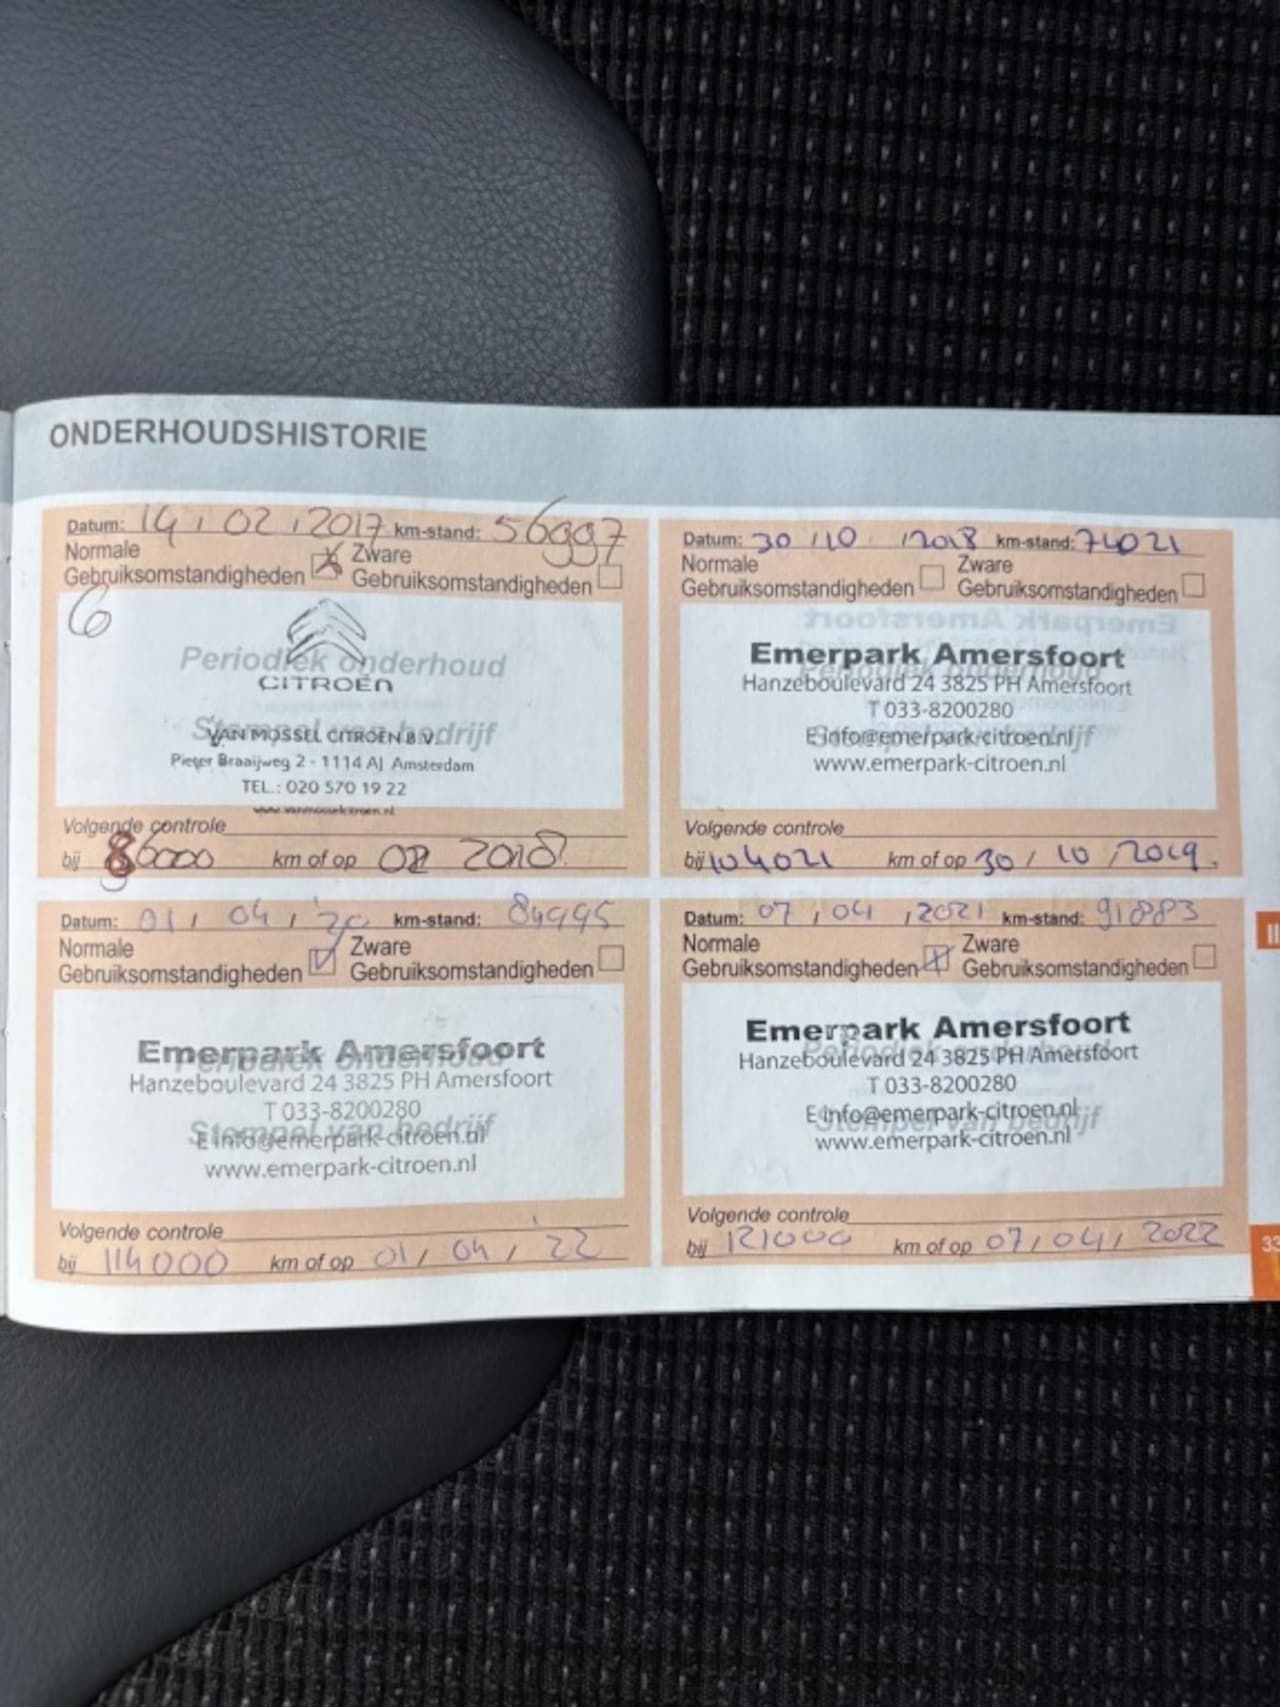 ONDERHOUDSHISTORIE
Datum: 14 / 02 / 2017 km-stand: 56997
Normale
Gebruiksomstandigheden
Zware
Gebruiksomstandigheden
6
Periodiek onderhoud
CITROËN
Stempel van bedrijf
VAN MOSSEL CITROËN B.V.
Pieter Braaijweg 2 - 1114 AJ Amsterdam
TEL.: 020 570 19 22
www.vanmosselcitroen.nl
Volgende controle
bij 86000 km of op 02 2018
Datum: 30 / 10 / 2018 km-stand: 74021
Normale
Gebruiksomstandigheden
Zware
Gebruiksomstandigheden
Emerpark Amersfoort
Periodiek onderhoud
Hanzeboulevard 24 3825 PH Amersfoort
T 033-8200280
Stempel van bedrijf
E info@emerpark-citroen.nl
www.emerpark-citroen.nl
Volgende controle
bij 104021 km of op 30 / 10 / 2019.
Datum: 01 / 04 / 20 km-stand: 84995
Normale
Gebruiksomstandigheden
Zware
Gebruiksomstandigheden
Emerpark Amersfoort
Periodiek onderhoud
Hanzeboulevard 24 3825 PH Amersfoort
T 033-8200280
Stempel van bedrijf
E info@emerpark-citroen.nl
www.emerpark-citroen.nl
Volgende controle
bij 114000 km of op 01 / 04 / 22
Datum: 07 / 04 / 2021 km-stand: 91883
Normale
Gebruiksomstandigheden
Zware
Gebruiksomstandigheden
Emerpark Amersfoort
Periodiek onderhoud
Hanzeboulevard 24 3825 PH Amersfoort
T 033-8200280
E info@emerpark-citroen.nl
Stempel van bedrijf
www.emerpark-citroen.nl
Volgende controle
bij 121000 km of op 07 / 04 / 2022
II
33